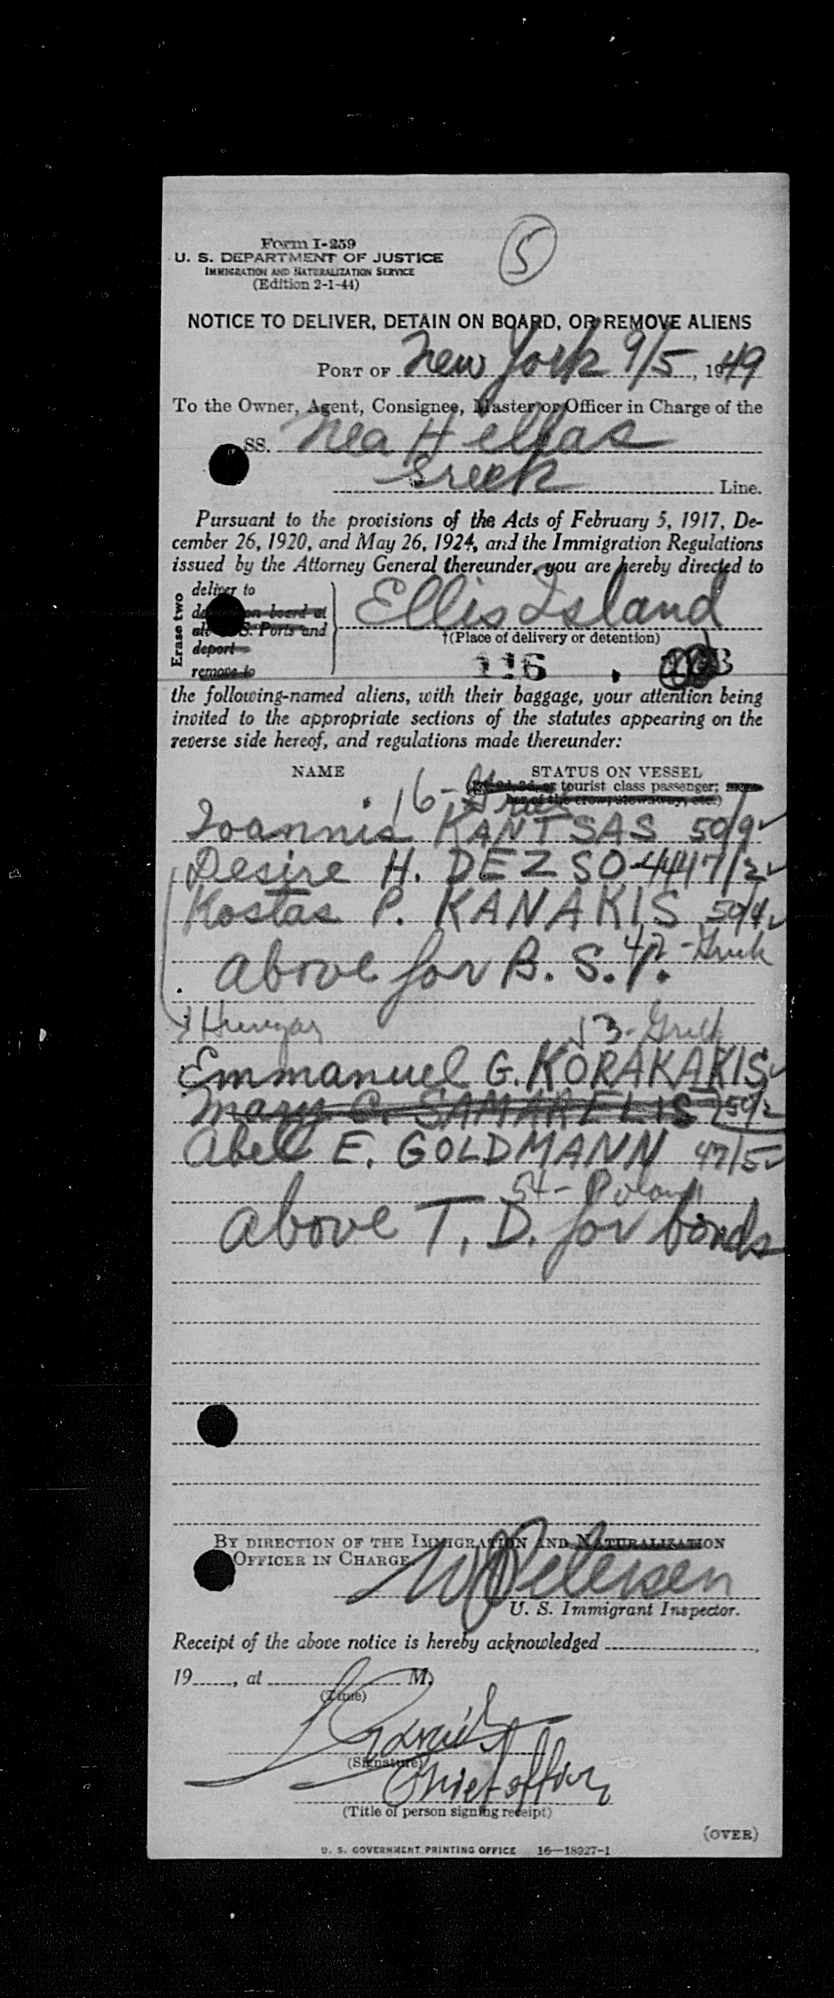 5
Form I-259
U. S. DEPARTMENT OF JUSTICE
IMMIGRATION AND NATURALIZATION SERVICE
(Edition 2-1-44)
NOTICE TO DELIVER, DETAIN ON BOARD, OR REMOVE ALIENS
PORT OF New York 9/5, 1949
To the Owner, Agent, Consignee, Master or Officer in Charge of the
SS. Nea Hellas
Greek Line.
Pursuant to the provisions of the Acts of February 5, 1917, De-
cember 26, 1920, and May 26, 1924, and the Immigration Regulations
issued by the Attorney General thereunder, you are hereby directed to
Erase two
deliver to
on board at
S. Ports and
deport
remove to
Ellis Island
†(Place of delivery or detention)
116
the following-named aliens, with their baggage, your attention being
invited to the appropriate sections of the statutes appearing on the
reverse side hereof, and regulations made thereunder:
NAME STATUS ON VESSEL
tourist class passenger;
16-Greek
Ioannis KANTSAS 50/9
Desire H. DEZSO 44 47/2
Kostas P. KANAKIS 50/4
47-Greek
above for B. S. I.
Hungar 53-Greek
Emmanuel G. KORAKAKIS
Mary C. SAMARELIS 50/2
Abel E. GOLDMANN 47/5
54-Poland
above T. D. for bonds
BY DIRECTION OF THE IMMIGRATION AND NATURALIZATION
OFFICER IN CHARGE
W Petersen
U. S. Immigrant Inspector.
Receipt of the above notice is hereby acknowledged
19, at M.
(Time)
(Signature)
Chief officer
(Title of person signing receipt)
(OVER)
U. S. GOVERNMENT PRINTING OFFICE 16—18927-1